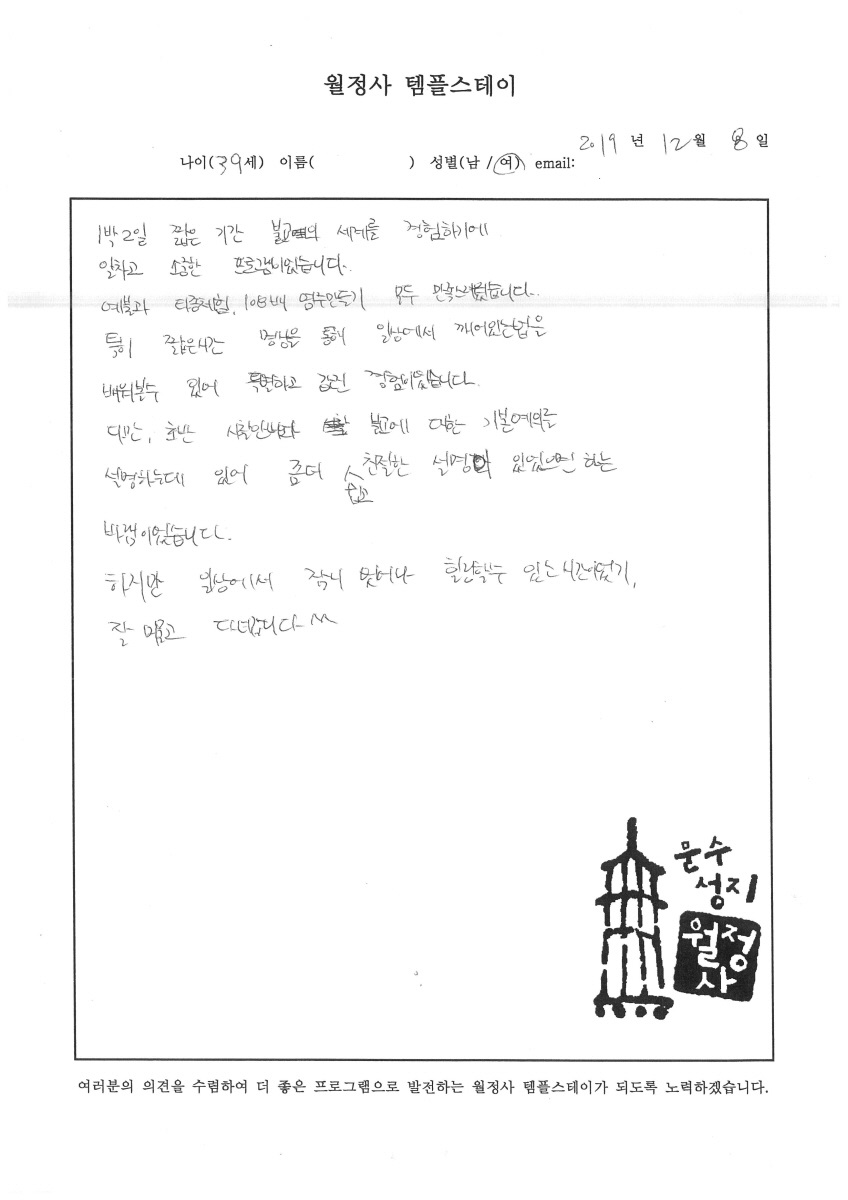 월정사 템플스테이
2019 년 12 월 8 일
나이(39세) 이름( ) 성별(남 / 여) email:
1박2일 짧은 기간 불교의 세계를 경험하기에
알차고 소중한 프로그램이었습니다.
예불과 타종체험, 108배 염주만들기 모두 만족스러웠습니다.
특히 짧은시간 명상을 통해 일상에서 깨어있는법을
배워볼수 있어 특별하고 값진 경험이었습니다.
다만, 초반 사찰안내와 불교에 대한 기본예의를
설명하는데 있어 좀더 쉽고 친절한 설명이 있었으면 하는
바램이었습니다.
하지만 일상에서 잠시 벗어나 힐링할수 있는 시간이었기,
잘 머물고 다녀갑니다 ^^
문수
성지
월정
사
여러분의 의견을 수렴하여 더 좋은 프로그램으로 발전하는 월정사 템플스테이가 되도록 노력하겠습니다.